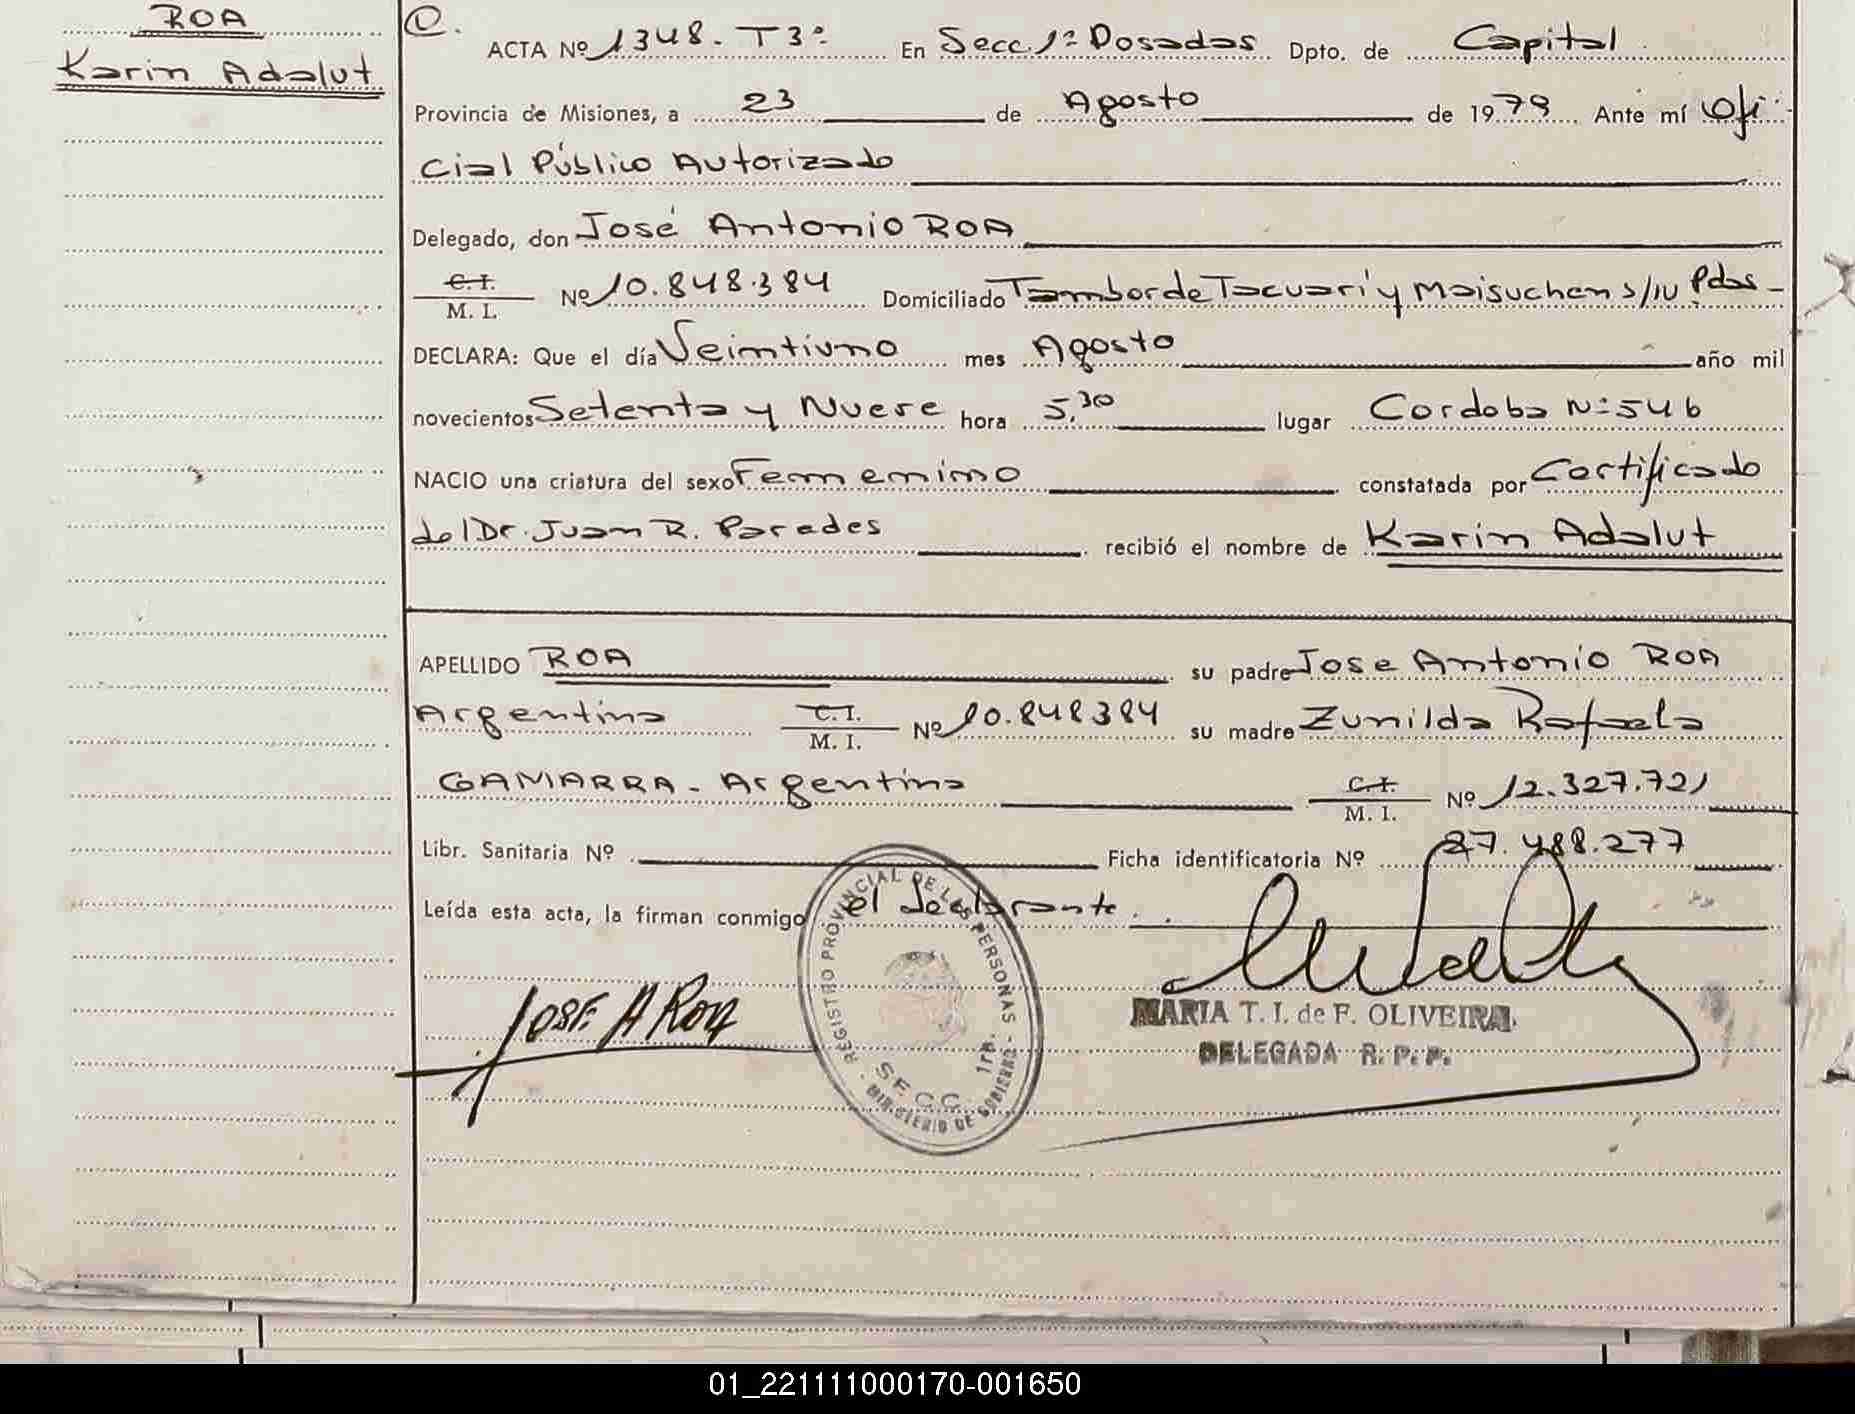 ROA
Karin Adalut
ACTA Nº 1348. T3º En Secc. 1ª Posadas Dpto. de Capital
Provincia de Misiones, a 23 de Agosto de 1979 Ante mí Ofi
cial Público Autorizado
Delegado, don José Antonio ROA
C.I.
M. I. Nº 10.848.384 Domiciliado Tambor de Tacuarí y Maisuchen s/n Pdas-
DECLARA: Que el día Veintiuno mes Agosto año mil
novecientos Setenta y Nueve hora 5,30 lugar Cordoba Nº 546
NACIO una criatura del sexo Femenino constatada por Certificado
del Dr. Juan R. Paredes recibió el nombre de Karin Adalut
APELLIDO ROA su padre Jose Antonio ROA
Argentino C.I.
M. I. Nº 10.848384 su madre Zunilda Rafaela
GAMARRA - Argentina C.I.
M. I. Nº 12.327.721
Libr. Sanitaria Nº Ficha identificatoria Nº 27.488.277
Leída esta acta, la firman conmigo el declarante.
JOSE A ROA
REGISTRO PROVINCIAL DE LAS PERSONAS - MINISTERIO DE GOBIERNO -
SECC. 1ra.
MARIA T. I. de F. OLIVEIRA
DELEGADA R. P. P.
01_221111000170-001650